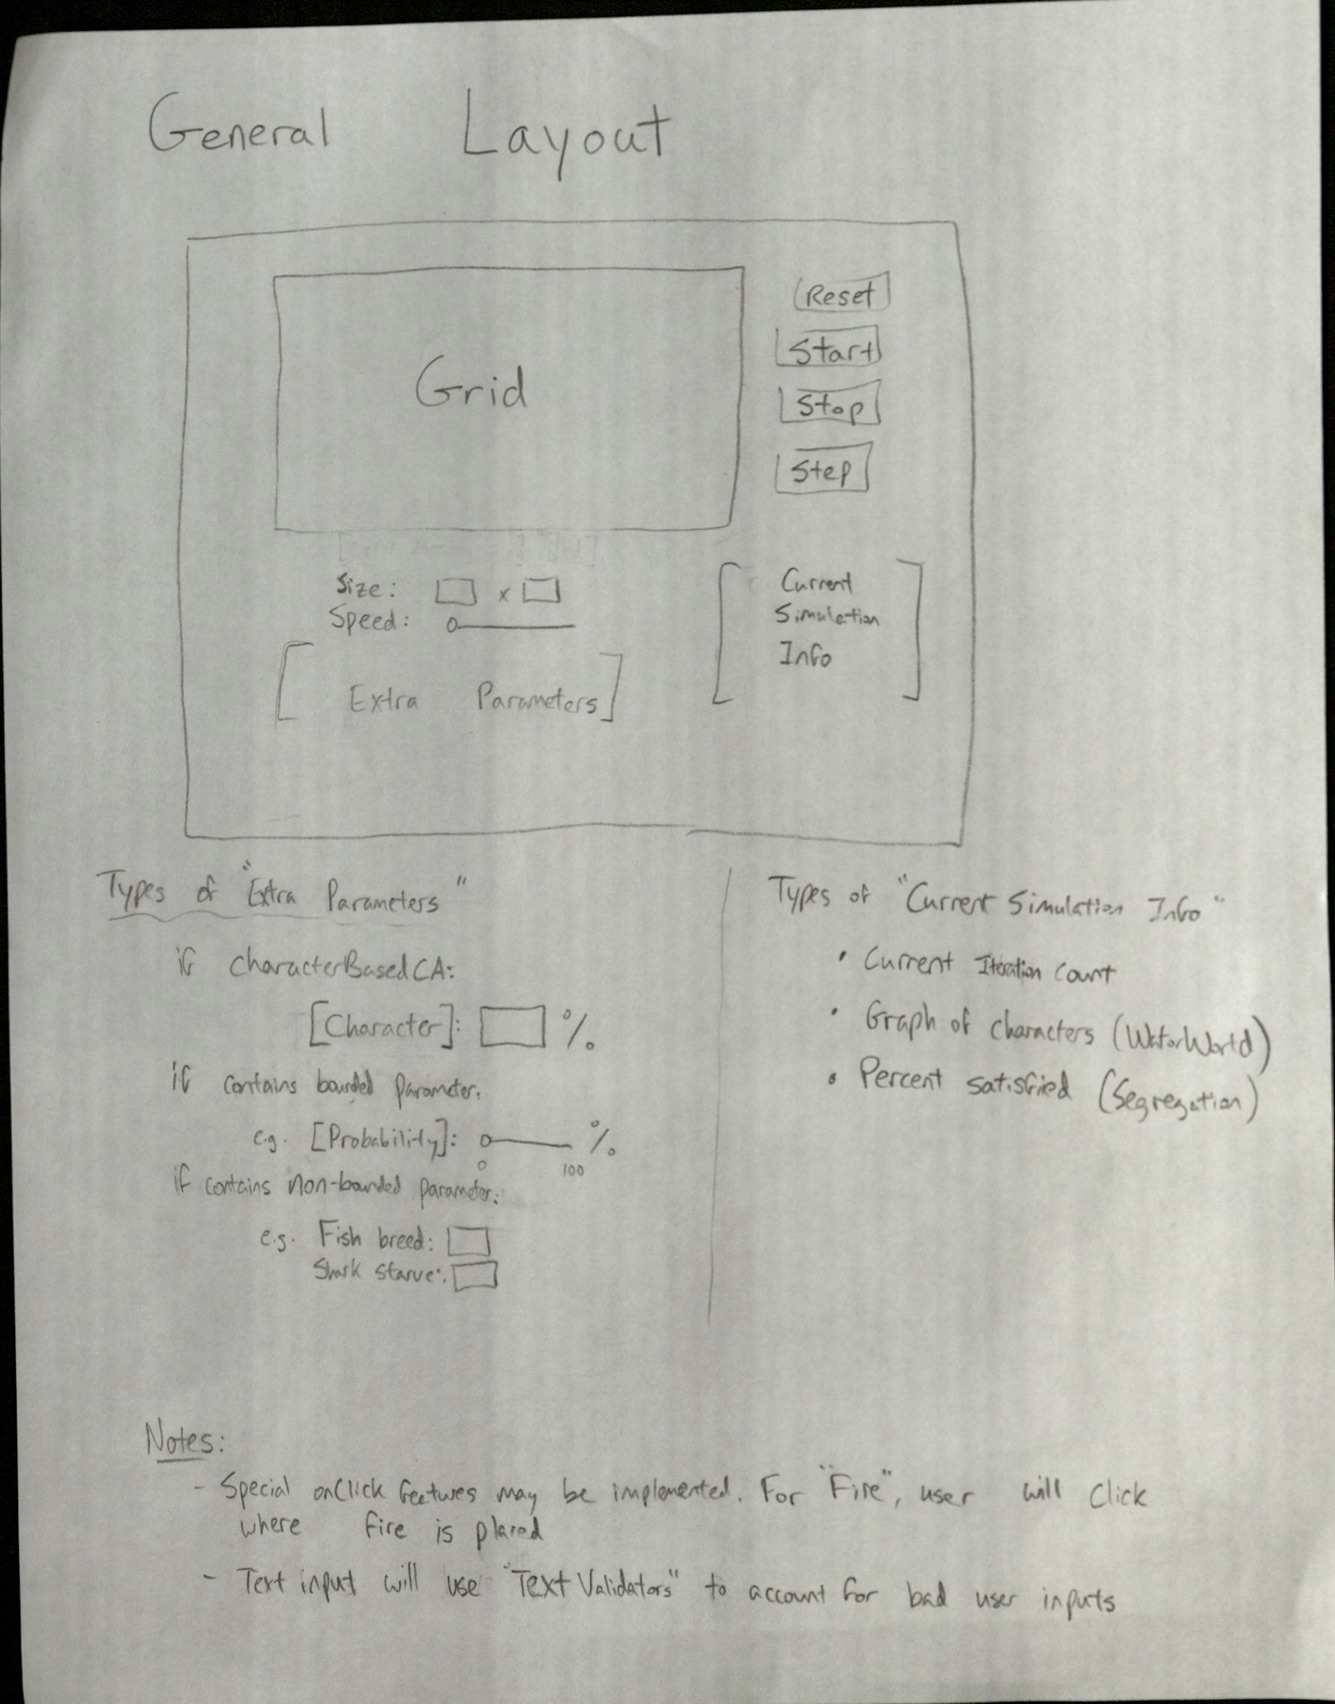 General Layout
Grid
Reset
Start
Stop
Step
Size: x
Speed:
[Extra Parameters]
[Current
Simulation
Info]
Types of "Extra Parameters"
if CharacterBasedCA:
[Character]: %
if contains bounded parameter:
e.g. [Probability]: %
0 100
if contains non-bounded parameter:
e.g. Fish breed:
Shark starve:
Types of "Current Simulation Info"
• Current Iteration Count
• Graph of characters (WatorWorld)
• Percent satisfied (Segregation)
Notes:
- Special onClick features may be implemented. For "Fire", user will click
where fire is placed
- Text input will use "Text Validators" to account for bad user inputs